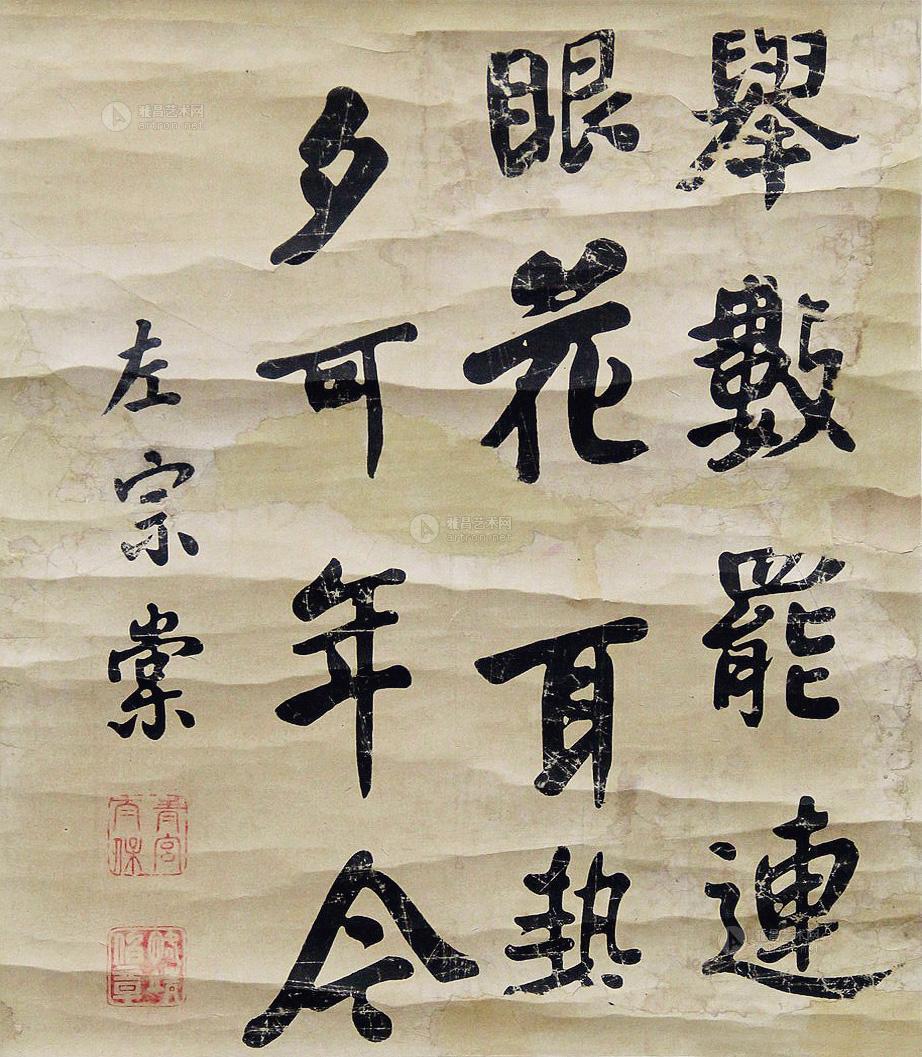 舉數罷連
眼花耳熱
夕可年令
左宗棠
青宮太保
雅昌艺术网
artron.net
雅昌艺术网
artron.net